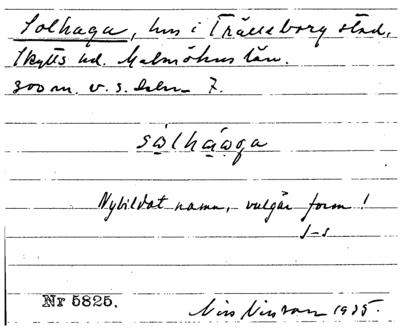 Solhaga, hus i Trälleborg stad,
Skytts hd. Malmöhus län.
300 m. v. s. 7.
Nybildat namn, vulgär form!
J-s
Nr 5825.
Nils Nilsson 1935.